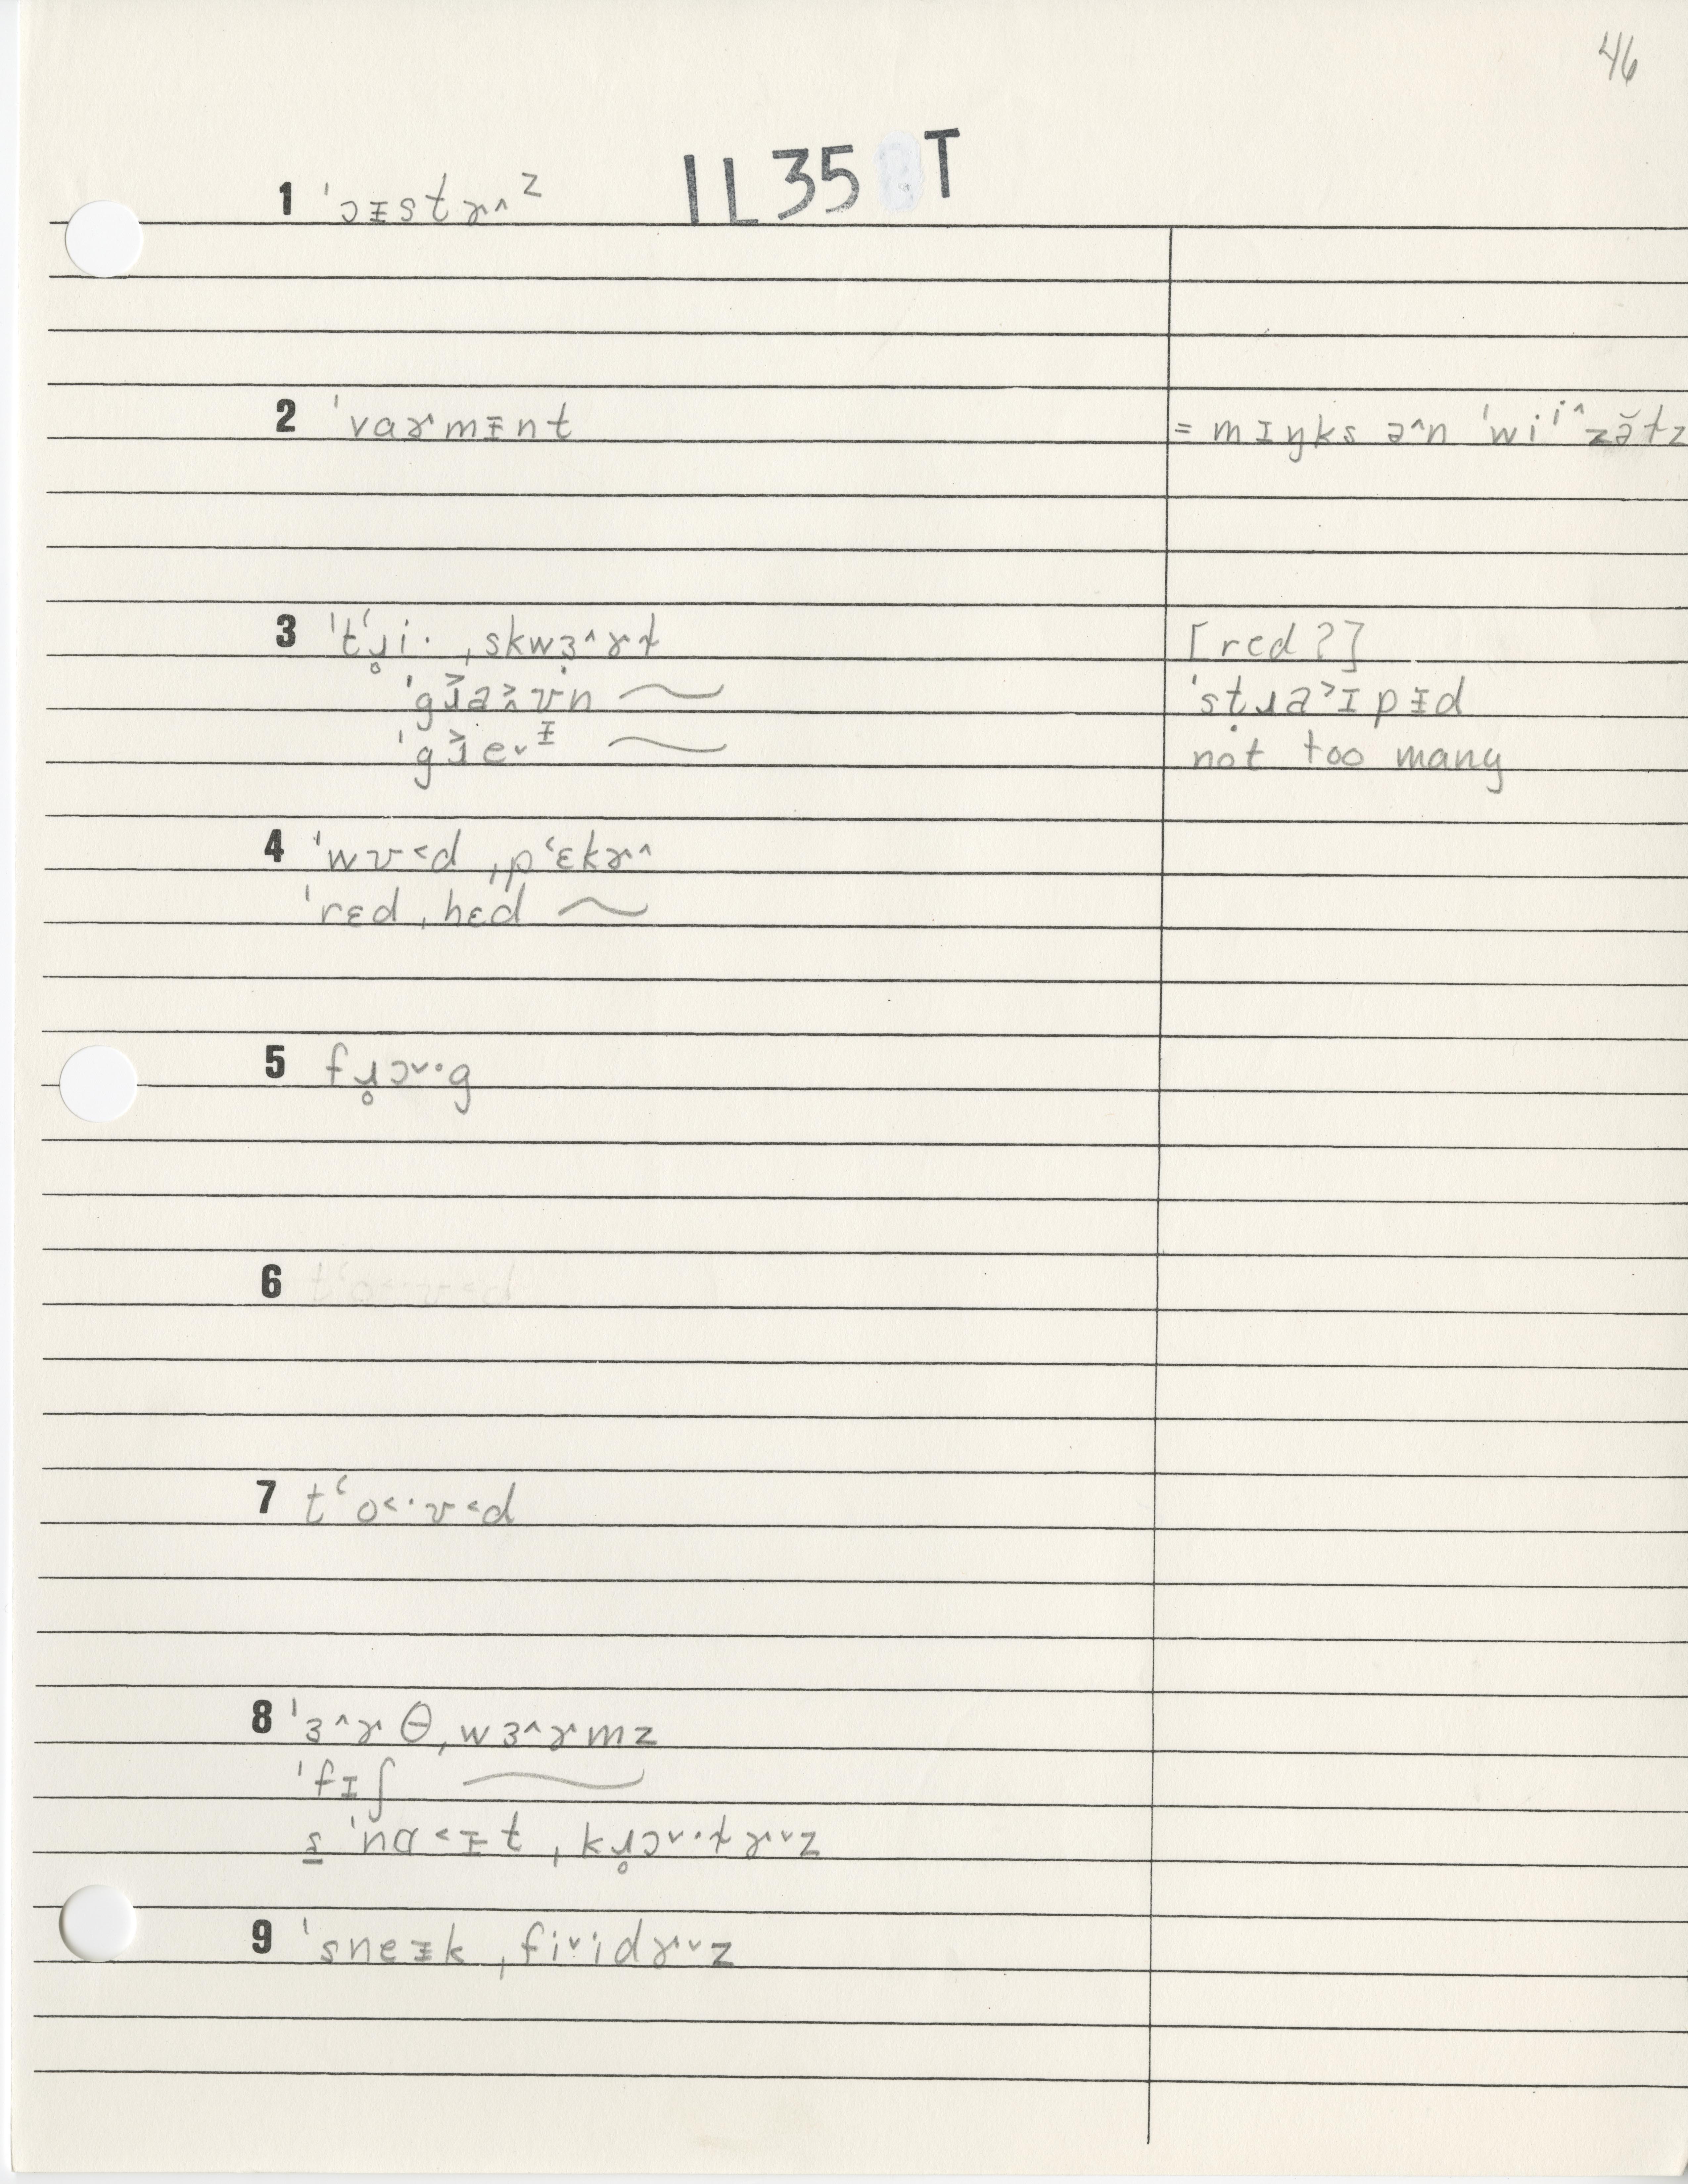 46
IL35 T
1 ˈɔᵻstɚ˄ᶻ
2 ˈvaɚmᵻnt = mɪŋks ə˄n ˈwiⁱ˄zə̆tz
3 ˈtʻɹ̥i· ˌskwɜ˄ɚɫ [red?]
ˈgɹ̌a˲ʊn ~ ˈstɹa˃ɪpᵻd
ˈgɹ̌e˅ᵻ ~ not too many
4 ˈwʊ˂d ˌpʻɛkɚ˄
ˈrɛd ˌhɛd ~
5 fɹ̥ɔ˅·g
6
7 tʻo˂·ʊ˂d
8 ˈɜ˄ɚθ ˌwɜ˄ɚmz
ˈfɪʃ ~
s̲ ˈnɑ˂ᵻt ˌkɹ̥ɔ˅·ɫɚ˅z
9 ˈsneᵻk ˌfi˅idɚ˅z